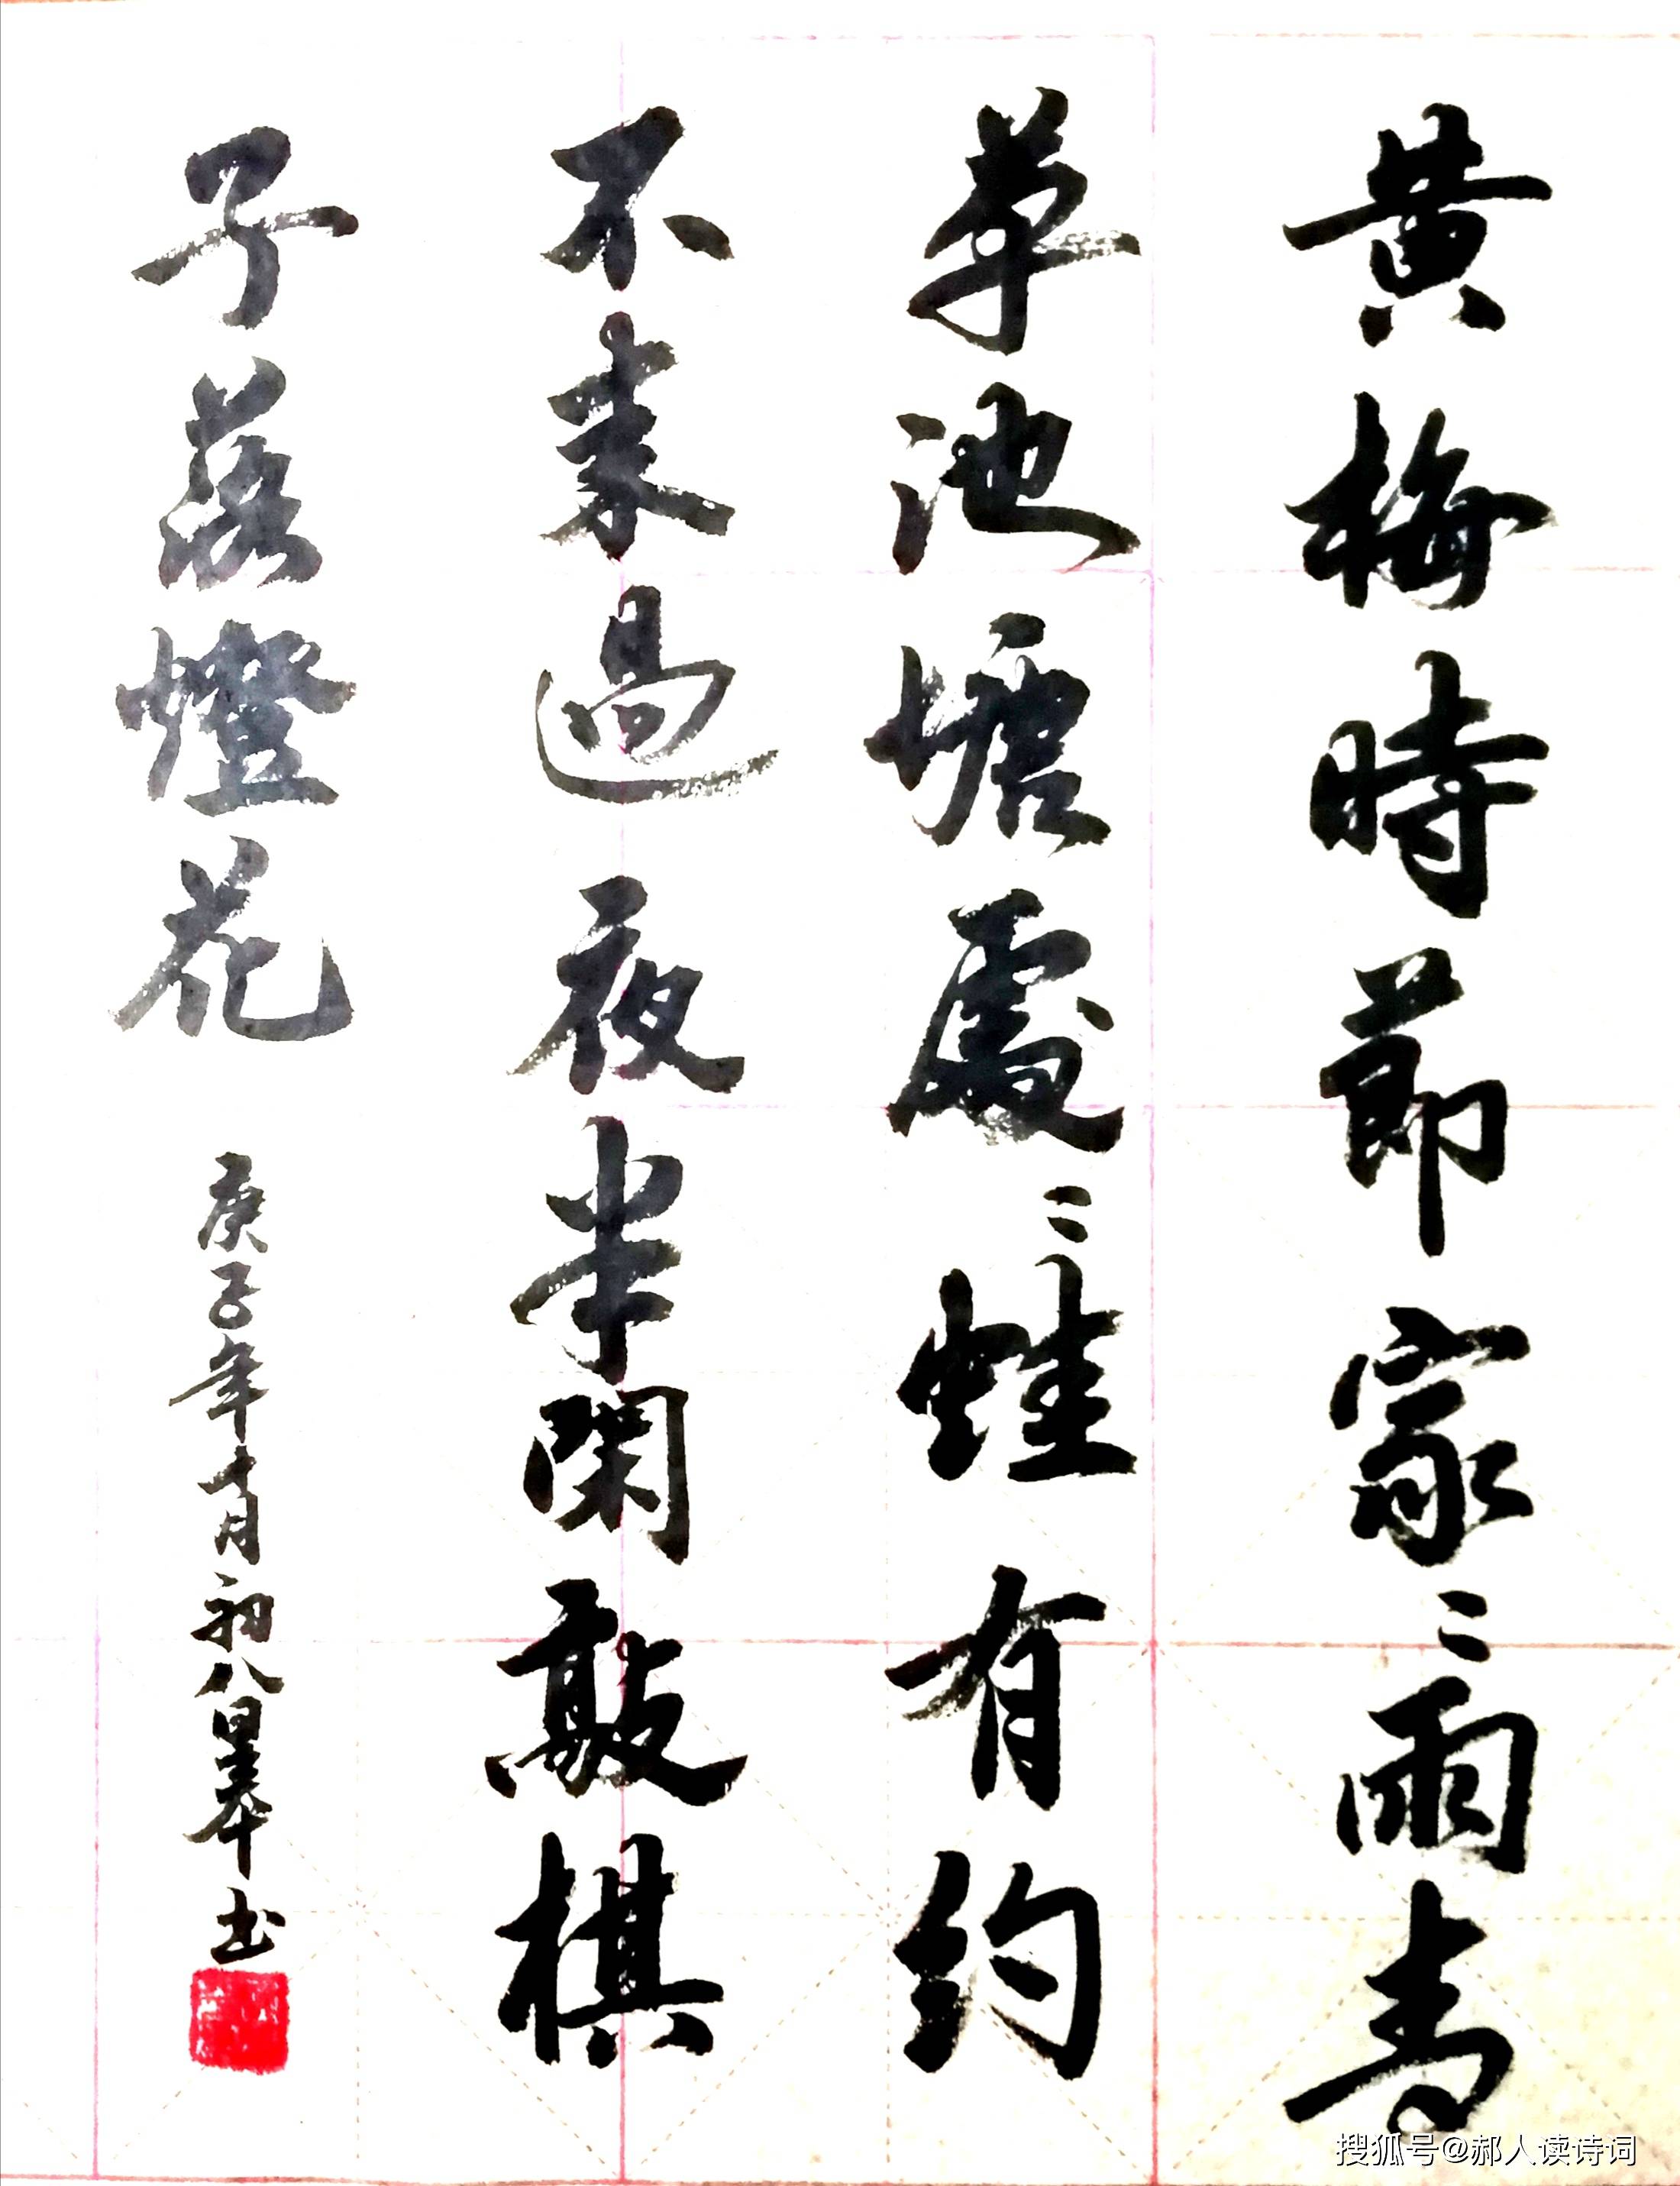 黄梅時節家〻雨青
草池塘處〻蛙有約
不来過夜半閑敲棋
子落燈花
庚子年十月初八
书
搜狐号@郝人读诗词